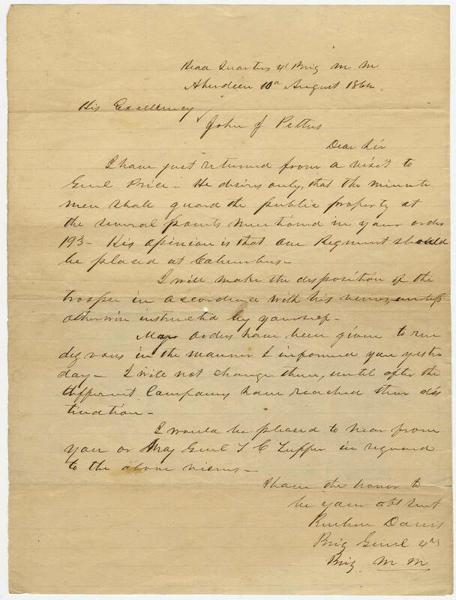 Head Quarters 4th Brig M M
Aberdeen 10th August 1862
His Excellency
John J Pettus
Dear Sir
I have just returned from a visit to
Genl Price - He desires only, that the minute
men shall guard the public property at
the several points mentioned in your order
193 - His opinion is that one Regiment should
be placed at Columbus -
I will make the disposition of the
troops in accordance with his views, unless
otherwise instructed by yourself -
My orders have been given to
in the manner I informed you yester
day - I will not change them, until after the
different Companys have reached their des
tination -
I would be pleased to hear from
you or Maj Genl T C Tupper in reguard
to the above views -
I have the honor to
be your obt Svt
Reuben Davis
Brig Genl 4th
Brig M M